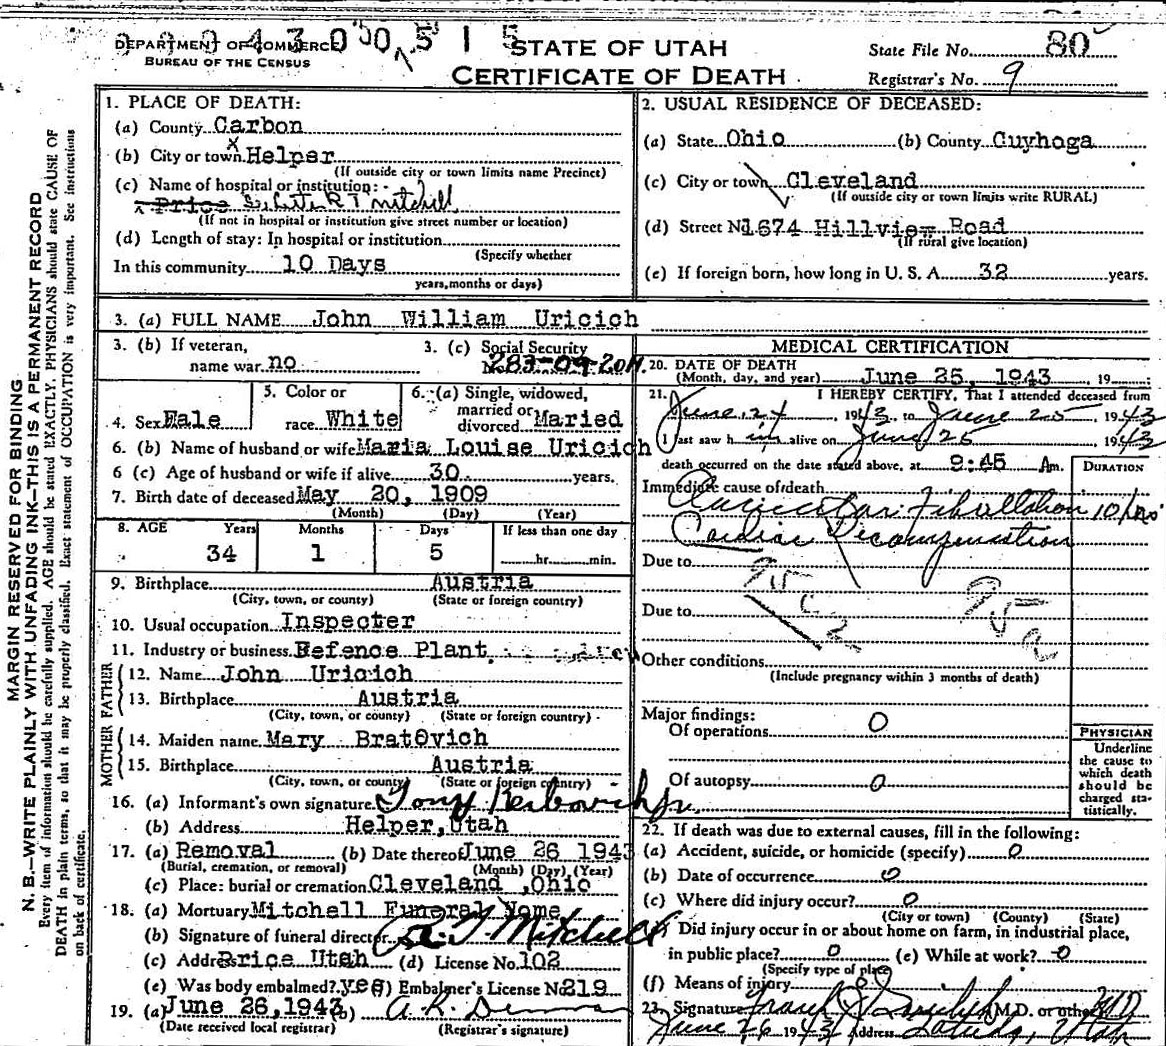 DEPARTMENT OF COMMERCE
BUREAU OF THE CENSUS
STATE OF UTAH
CERTIFICATE OF DEATH
State File No. 80
Registrar's No. 9
MARGIN RESERVED FOR BINDING
N. B.—WRITE PLAINLY WITH UNFADING INK—THIS IS A PERMANENT RECORD
Every item of information should be carefully supplied. AGE should be stated EXACTLY. PHYSICIANS should state CAUSE OF
DEATH in plain terms, so that it may be properly classified. Exact statement of OCCUPATION is very important. See instructions
on back of certificate.
1. PLACE OF DEATH:
(a) County Carbon
(b) City or town Helper
(If outside city or town limits name Precinct)
(c) Name of hospital or institution:
Price
(If not in hospital or institution give street number or location)
(d) Length of stay: In hospital or institution
(Specify whether
In this community 10 Days
years, months or days)
2. USUAL RESIDENCE OF DECEASED:
(a) State Ohio (b) County Cuyhoga
(c) City or town Cleveland
(If outside city or town limits write RURAL)
(d) Street N 1674 Hillview Road
(If rural give location)
(e) If foreign born, how long in U. S. A. 32 years.
3. (a) FULL NAME John William Uricich
3. (b) If veteran,
name war no
3. (c) Social Security
4. Sex Male
5. Color or
race White
6. (a) Single, widowed,
married or
divorced Maried
6. (b) Name of husband or wife Maria Louise Uricich
6 (c) Age of husband or wife if alive 30 years.
7. Birth date of deceased May 20, 1909
(Month) (Day) (Year)
8. AGE Years Months Days If less than one day
34 1 5 hr. min.
9. Birthplace Austria
(City, town, or county) (State or foreign country)
10. Usual occupation Inspecter
11. Industry or business Defence Plant
FATHER
12. Name John Uricich
13. Birthplace Austria
(City, town, or county) (State or foreign country)
MOTHER
14. Maiden name Mary Bratovich
15. Birthplace Austria
(City, town, or county) (State or foreign country)
16. (a) Informant's own signature Tony Jr.
(b) Address Helper, Utah
17. (a) Removal (b) Date thereof June 26 1943
(Burial, cremation, or removal) (Month) (Day) (Year)
(c) Place: burial or cremation Cleveland, Ohio
18. (a) Mortuary Mitchell Funeral Home
(b) Signature of funeral director R. T. Mitchell
(c) Addr Price Utah (d) License No. 102
(e) Was body embalmed? yes (f) Embalmer's License No 219
19. (a) June 26, 1943 (b) A. R.
(Date received local registrar) (Registrar's signature)
MEDICAL CERTIFICATION
20. DATE OF DEATH
(Month, day, and year) June 25, 1943 19
21. I HEREBY CERTIFY, That I attended deceased from
June 24 1943 to June 25 1943
I last saw h im alive on June 25 1943
death occurred on the date stated above, at 9:45 Am.
DURATION
Immediate cause of death
Auricular Fibrillation
Cardiac Decompensation
Due to
Due to
Other conditions
(Include pregnancy within 3 months of death)
Major findings:
Of operations 0
Of autopsy 0
PHYSICIAN
Underline
the cause to
which death
should be
charged sta-
tistically.
22. If death was due to external causes, fill in the following:
(a) Accident, suicide, or homicide (specify) 0
(b) Date of occurrence 0
(c) Where did injury occur? 0
(City or town) (County) (State)
Did injury occur in or about home on farm, in industrial place,
in public place? 0 (e) While at work? 0
(Specify type of place)
(f) Means of injury 0
23. Signature Frank J. M.D. or other MD
June 26 1943 Address Latuda, Utah